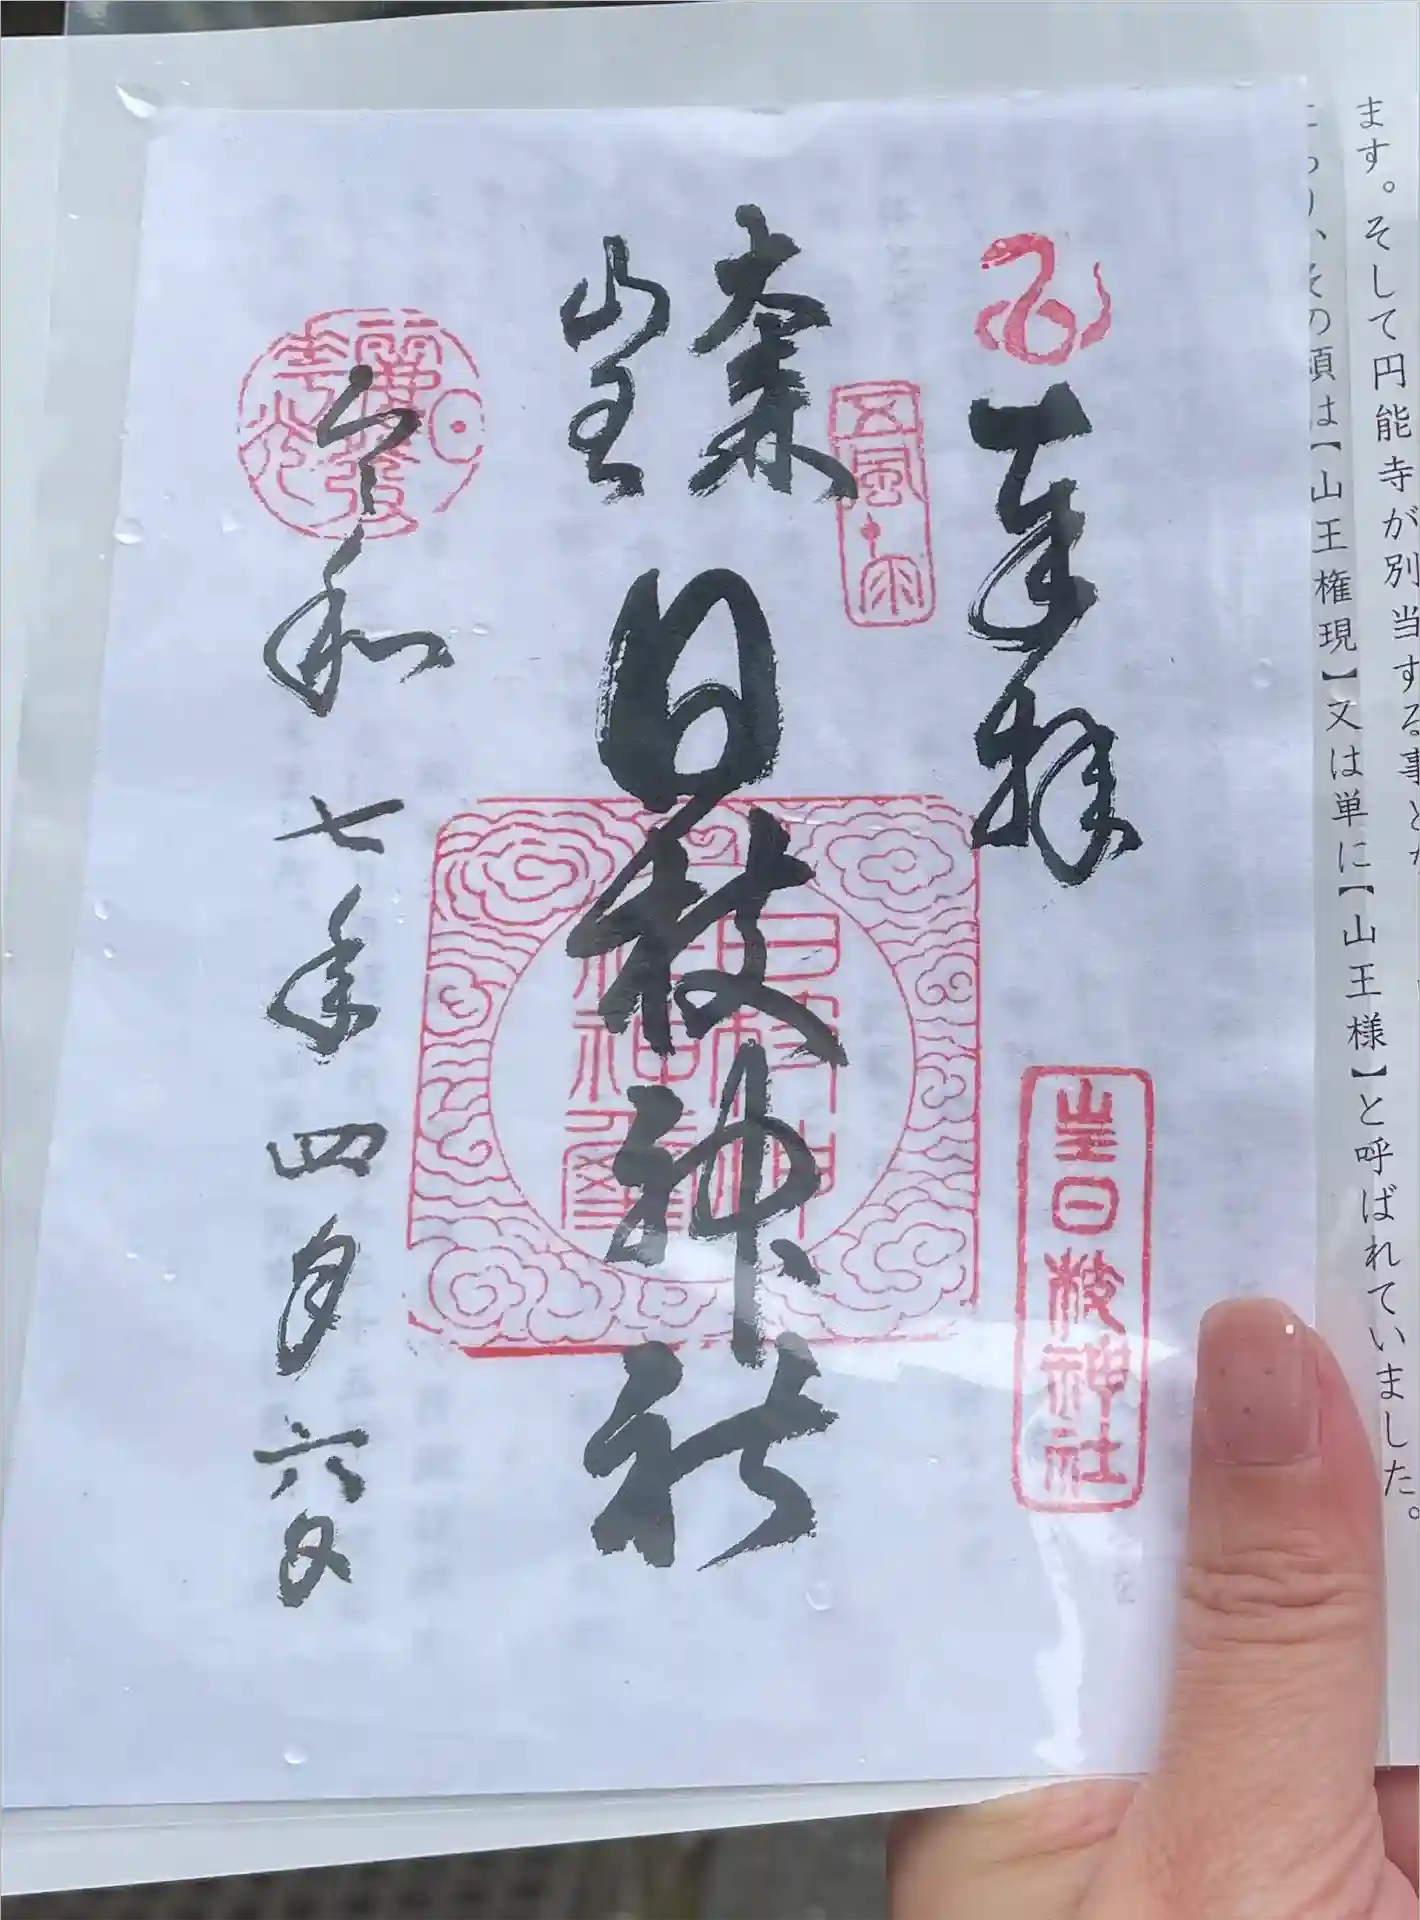 ます。そして円能寺が別当する事とな
その頃は【山王権現】又は単に【山王様】と呼ばれていました。
奉拝
山王日枝神社
五風十雨
山王
日枝神社
令和七年四月六日